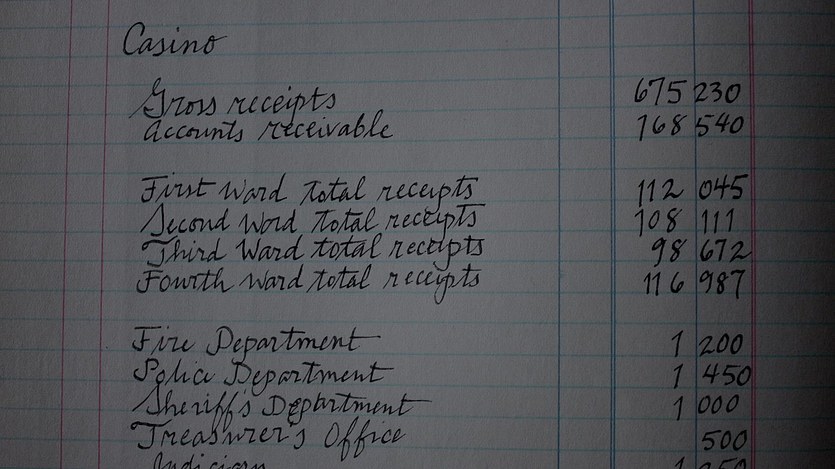 Casino
Gross receipts 675 230
Accounts receivable 168 540
First Ward total receipts 112 045
Second Word total receipts 108 111
Third Ward total receipts 98 672
Fourth Ward total receipts 116 987
Fire Department 1 200
Police Department 1 450
Sheriff's Department 1 000
Treasurer's Office 500